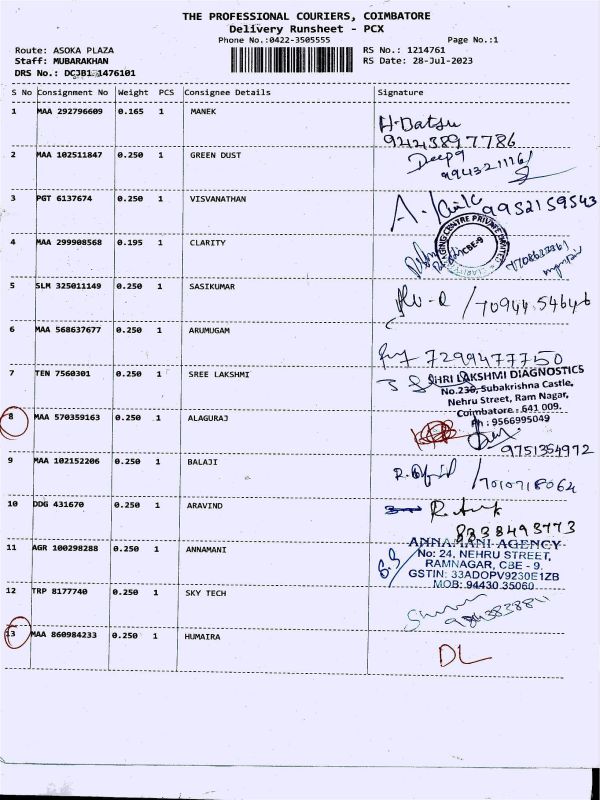 THE PROFESSIONAL COURIERS, COIMBATORE
Delivery Runsheet - PCX
Phone No.:0422-3505555 Page No.:1
Route: ASOKA PLAZA RS No.: 1214761
Staff: MUBARAKHAN RS Date: 28-Jul-2023
DRS No.: DCJB1 1476101
S No Consignment No Weight PCS Consignee Details Signature
1 MAA 292796609 0.165 1 MANEK
9443897786
2 MAA 102511847 0.250 1 GREEN DUST
Deepa
3 PGT 6137674 0.250 1 VISVANATHAN
9952159543
4 MAA 299908568 0.195 1 CLARITY
CENTRE PRIVATE LIMITED
CBE-9
CLARITY
5 SLM 325011149 0.250 1 SASIKUMAR
70944 54646
6 MAA 568637677 0.250 1 ARUMUGAM
7299477750
7 TEN 7560301 0.250 1 SREE LAKSHMI
SHRI LAKSHMI DIAGNOSTICS
No.236, Subakrishna Castle,
Nehru Street, Ram Nagar,
Coimbatore - 641 009.
Ph : 9566995049
8 MAA 570359163 0.250 1 ALAGURAJ
9751354972
9 MAA 102152206 0.250 1 BALAJI
7010718064
10 DDG 431670 0.250 1 ARAVIND
8838493773
11 AGR 100298288 0.250 1 ANNAMANI
ANNAMANI AGENCY
No: 24, NEHRU STREET,
RAMNAGAR, CBE - 9.
GSTIN: 33ADOPV9230E1ZB
MOB: 94430 35060
12 TRP 8177740 0.250 1 SKY TECH
13 MAA 860984233 0.250 1 HUMAIRA
DL